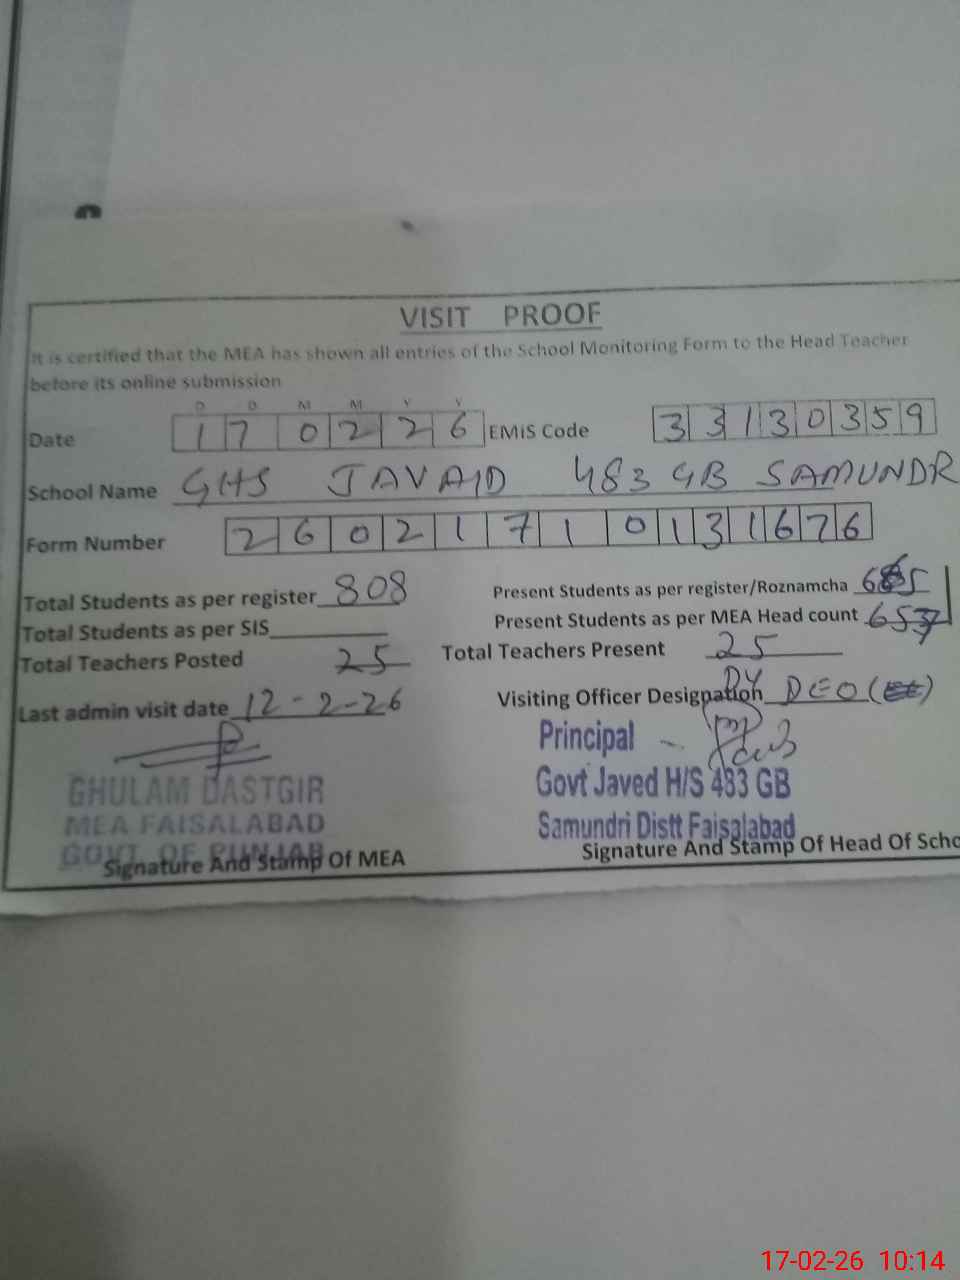 VISIT PROOF
It is certified that the MEA has shown all entries of the School Monitoring Form to the Head Teacher
before its online submission
D D M M Y Y
Date 1 7 0 2 2 6 EMIS Code 3 3 1 3 0 3 5 9
School Name GHS JAVAID 483 GB SAMUNDR
Form Number 2 6 0 2 1 7 1 0 1 3 1 6 7 6
Total Students as per register 808 Present Students as per register/Roznamcha
Total Students as per SIS Present Students as per MEA Head count 657
Total Teachers Posted 25 Total Teachers Present 25
Last admin visit date 12-2-26 Visiting Officer Designation DY DEO
GHULAM DASTGIR
MEA FAISALABAD
GOVT OF PUNJAB
Signature And Stamp Of MEA
Principal
Govt Javed H/S 483 GB
Samundri Distt Faisalabad
Signature And Stamp Of Head Of Scho
17-02-26 10:14